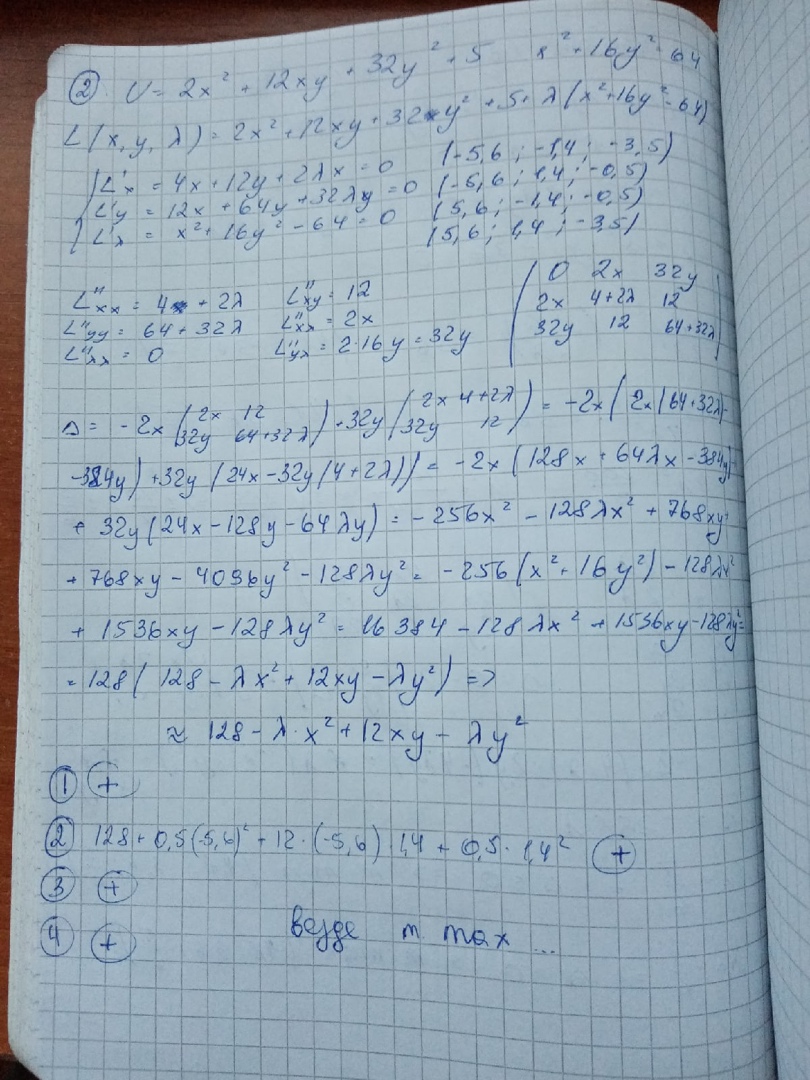 ② U = 2x² + 12xy + 32y² + 5 x² + 16y² = 64
L(x, y, λ) = 2x² + 12xy + 32y² + 5 + λ(x² + 16y² - 64)
L'x = 4x + 12y + 2λx = 0 (-5,6 ; -1,4 ; -3,5)
L'y = 12x + 64y + 32λy = 0 (-5,6 ; 1,4 ; -0,5)
L'λ = x² + 16y² - 64 = 0 (5,6 ; -1,4 ; -0,5)
(5,6 ; 1,4 ; -3,5)
L''xx = 4 + 2λ L''xy = 12 | 0 2x 32y |
L''yy = 64 + 32λ L''xλ = 2x | 2x 4+2λ 12 |
L''λλ = 0 L''yλ = 2·16y = 32y | 32y 12 64+32λ |
Δ = -2x (2x 12 / 32y 64+32λ) + 32y (2x 4+2λ / 32y 12) = -2x(2x(64+32λ)-
-384y) + 32y(24x - 32y(4+2λ)) = -2x(128x + 64λx - 384y)+
+ 32y(24x - 128y - 64λy) = -256x² - 128λx² + 768xy+
+ 768xy - 4096y² - 128λy² = -256(x² + 16y²) - 128λx²
+ 1536xy - 128λy² = 16384 - 128λx² + 1536xy - 128λy² =
= 128(128 - λx² + 12xy - λy²) =>
≈ 128 - λ·x² + 12xy - λy²
① +
② 128 + 0,5(-5,6)² + 12·(-5,6)·1,4 + 0,5·1,4² +
③ +
④ + везде т. max ...